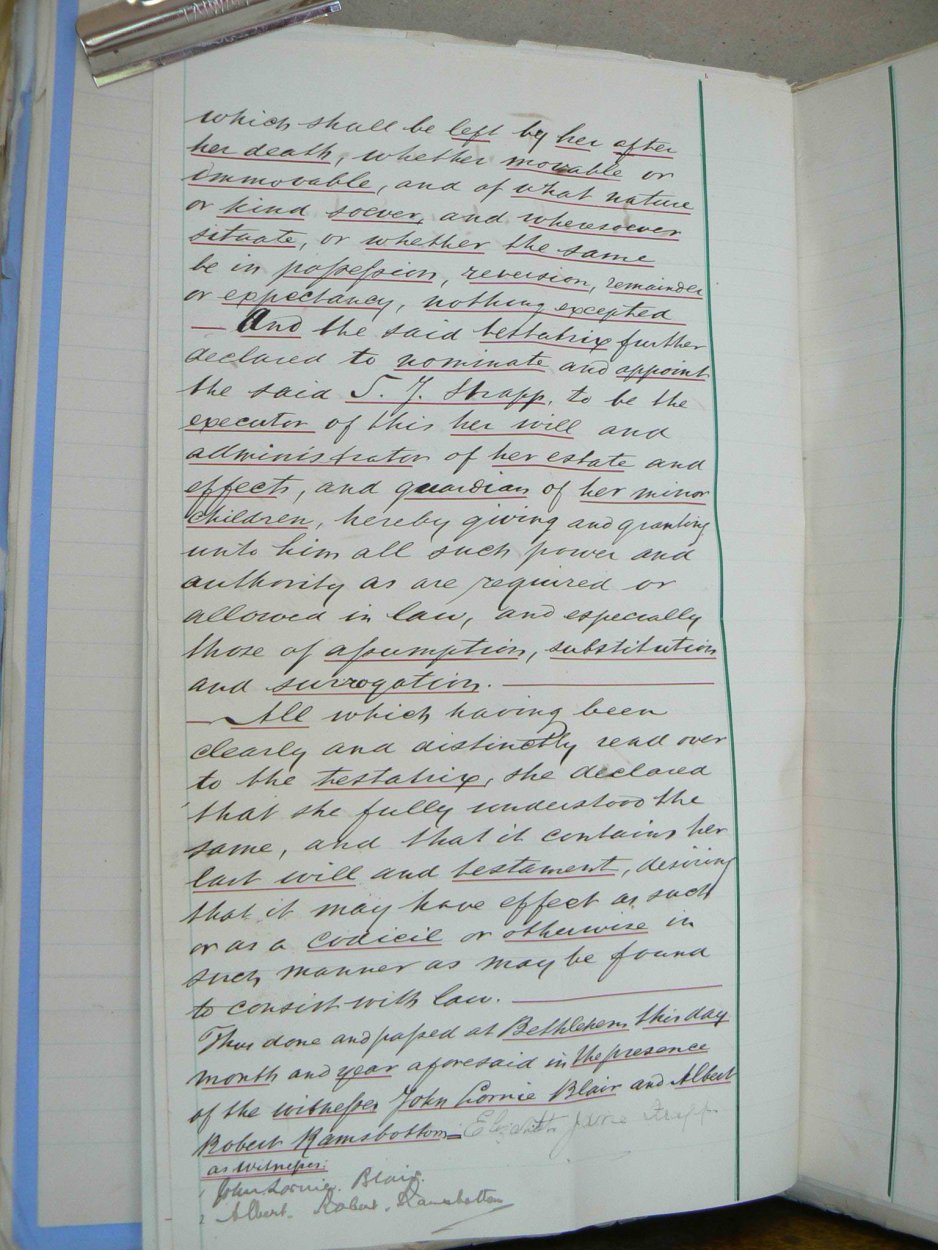 which shall be left by her after
her death, whether movable or
immovable, and of what nature
or kind soever, and wheresoever
situate, or whether the same
be in possession, reversion, remainder
or expectancy, nothing excepted
— And the said testatrix further
declared to nominate and appoint
the said S. J. Strapp. to be the
executor of this her will and
administrator of her estate and
effects, and guardian of her minor
children, hereby giving and granting
unto him all such power and
authority as are required or
allowed in law, and especially
those of assumption, substitution
and surrogation. —
— All which having been
clearly and distinctly read over
to the testatrix, she declared
that she fully understood the
same, and that it contains her
last will and testament, desiring
that it may have effect as such
or as a codicil or otherwise in
such manner as may be found
to consist with law. —
Thus done and passed at Bethlehem this day
month and year aforesaid in the presence
of the witnesses John Lornie Blair and Albert
Robert Ramsbottom — Elizabeth Jane Strapp
as witnesses:
1 John Lornie. Blair.
2 Albert. Robert. Ramsbottom